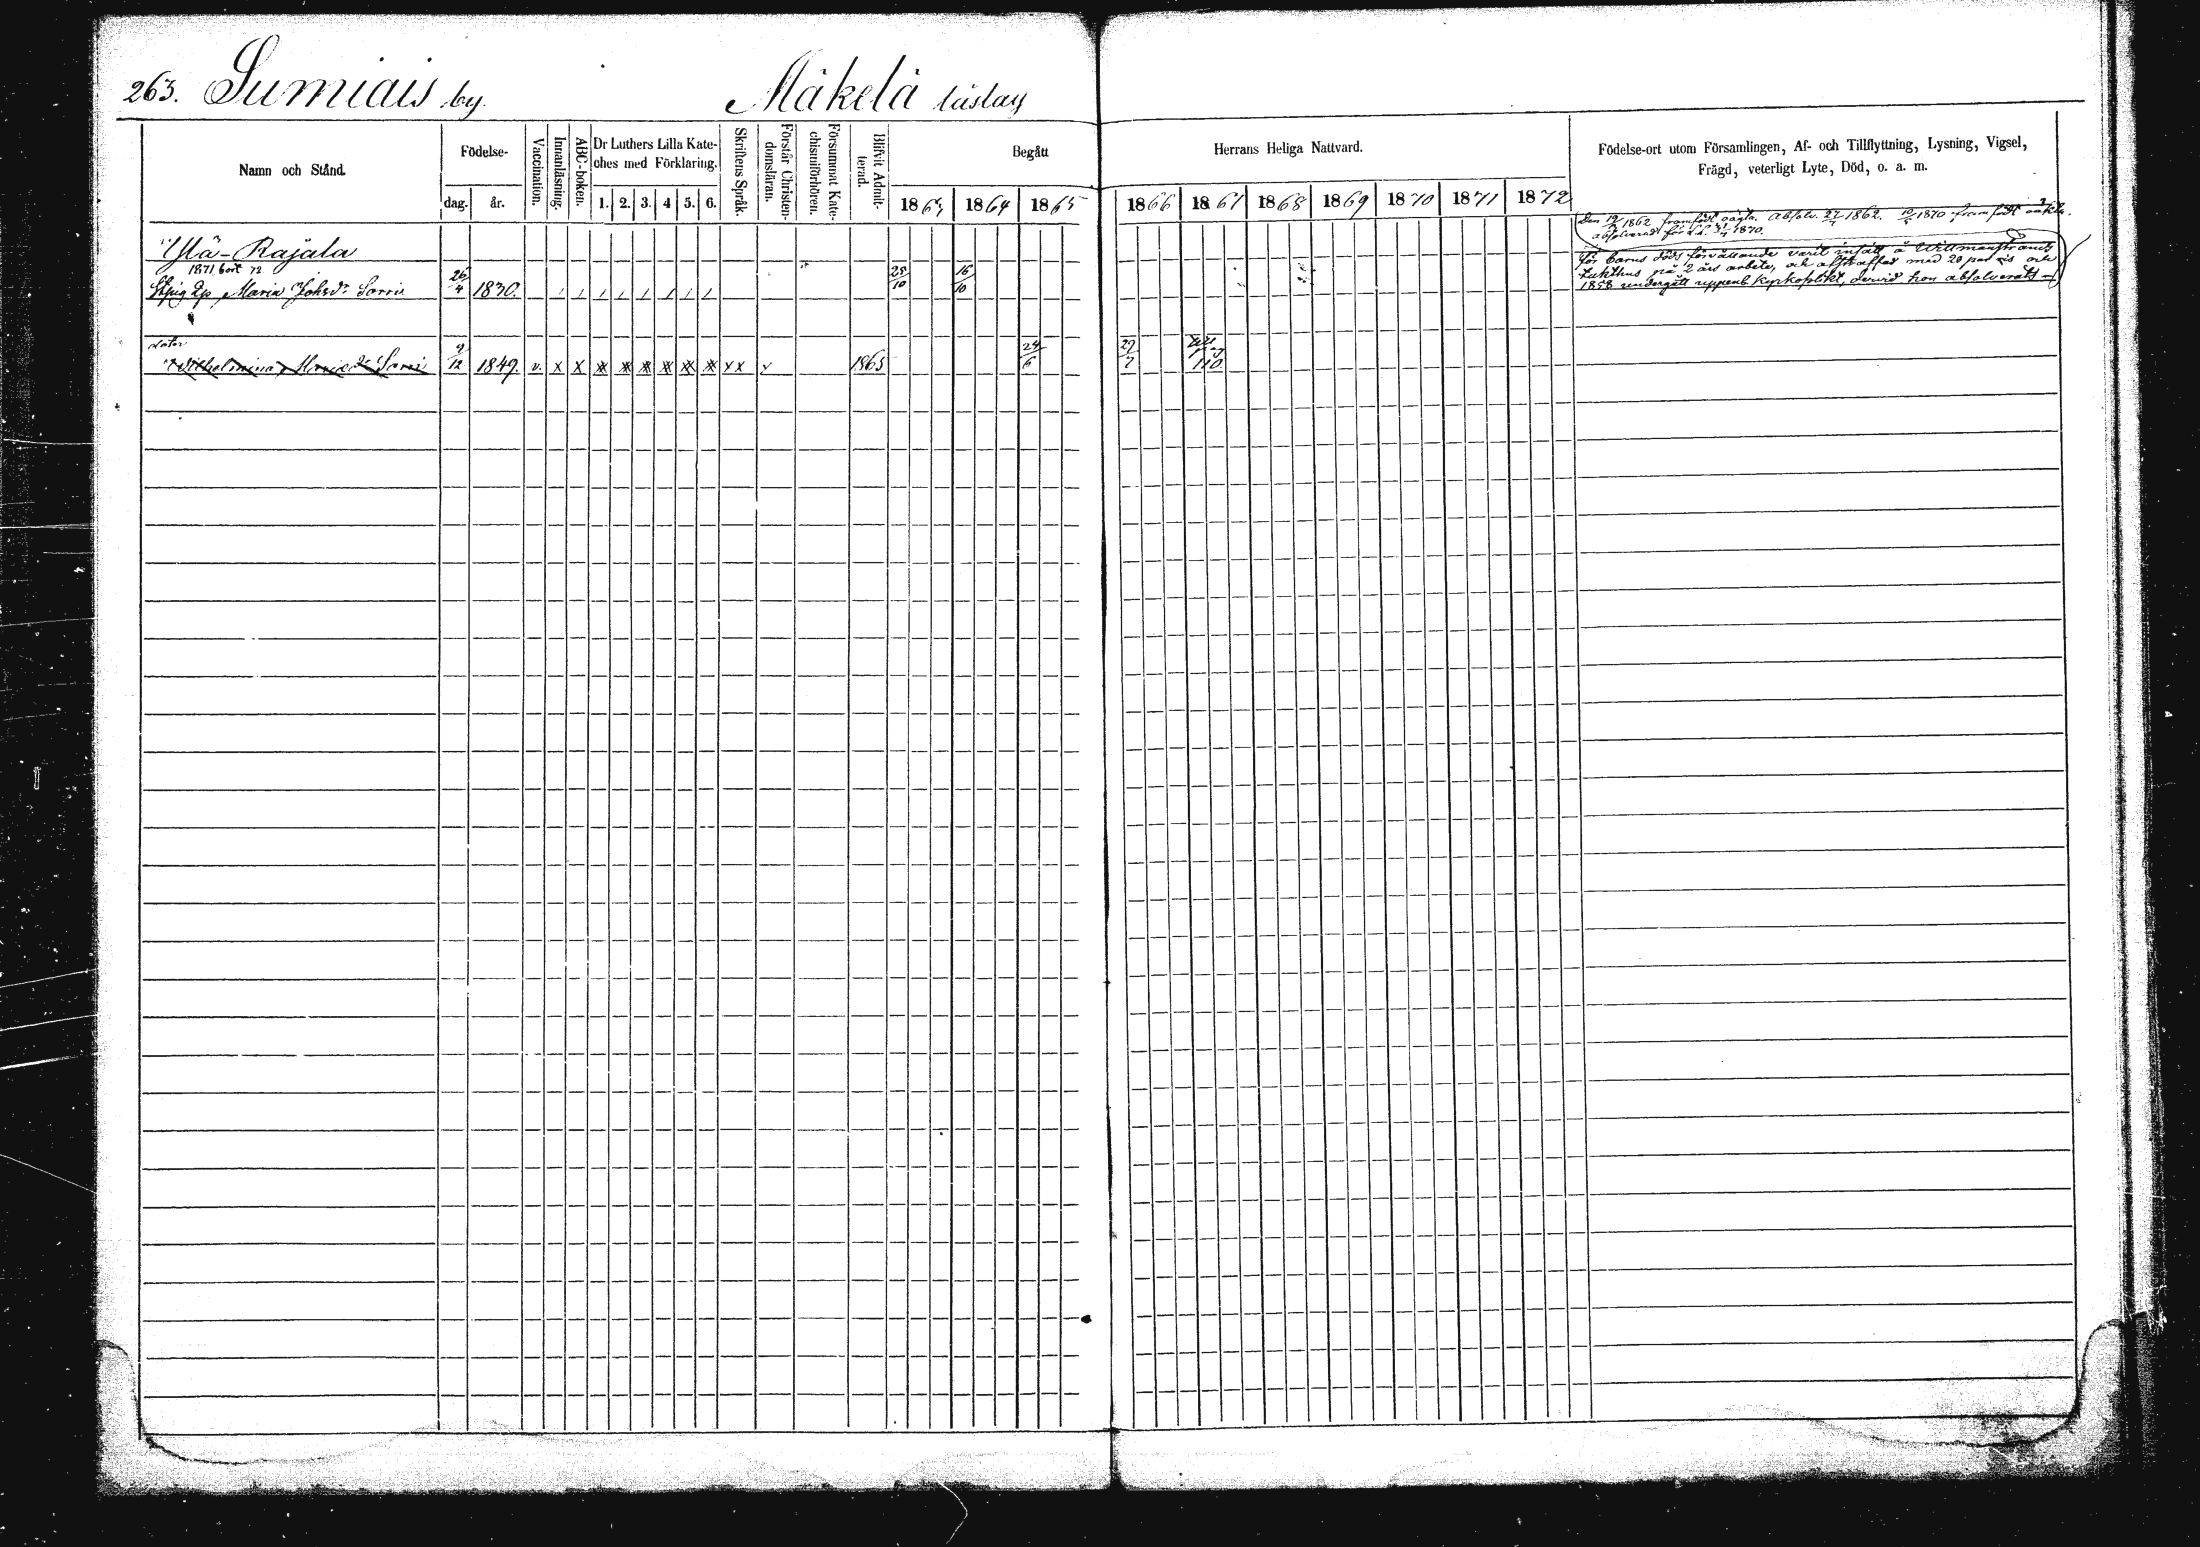 263. Sumiais by. Mäkelä
Namn och Stånd.
Födelse-
dag. år.
Vaccination.
Innanläsning.
ABC-boken.
Dr Luthers Lilla Kate-
ches med Förklaring.
1. 2. 3. 4 5. 6.
Skriftens Språk.
Förstår Christen-
domsläran.
Försummat Kate-
chismiförhören.
Blifvit Admit-
terad.
Begått Herrans Heliga Nattvard.
1863 1864 1865 1866 1867 1868 1869 1870 1871 1872
Födelse-ort utom Församlingen, Af- och Tillflyttning, Lysning, Vigsel,
Frägd, veterligt Lyte, Död, o. a. m.
Den 19/ 1862 framfödt oägta. Absolv. 27/ 1862. 1870 framfödt
absolverad för 1870.
Ylä-Rajala
1871 bort 72
Maria Johsdr Sorri 26/4 1830. 25/10 16/10
För barns döds förvållande varit insatt å Willmanstrands
tukthus på 2 års arbete, och afstraffad med 20 par ris och
1858 undergått uppenb. kyrkoplikt, dervid hon absolverats
dotter
Wilhelmina Sorri 9/12 1849. v. x x x x x x x x x x 1865 24/6 29/7
110